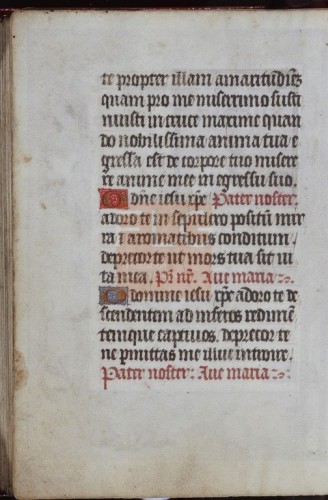 te propter illam amaritudinē
quam pro me miserrimo susti
nuisti in cruce maxime quan
do nobilissima anima tua e
gressa est de corpore tuo misere
re anime mee in egressu suo.
O dn̄e iesu xp̄e Pater noster.
adoro te in sepulcro positū mir
ra ⁊ aromatibus conditum.
deprecor te ut mors tua sit vi
ta mea. Pr̄ nr̄. Aue maria
O domine iesu xp̄e adoro te de
scendentem ad inferos redimen
temque captiuos. deprecor te
ne p̄mittas me illuc introire.
Pater noster. Aue maria